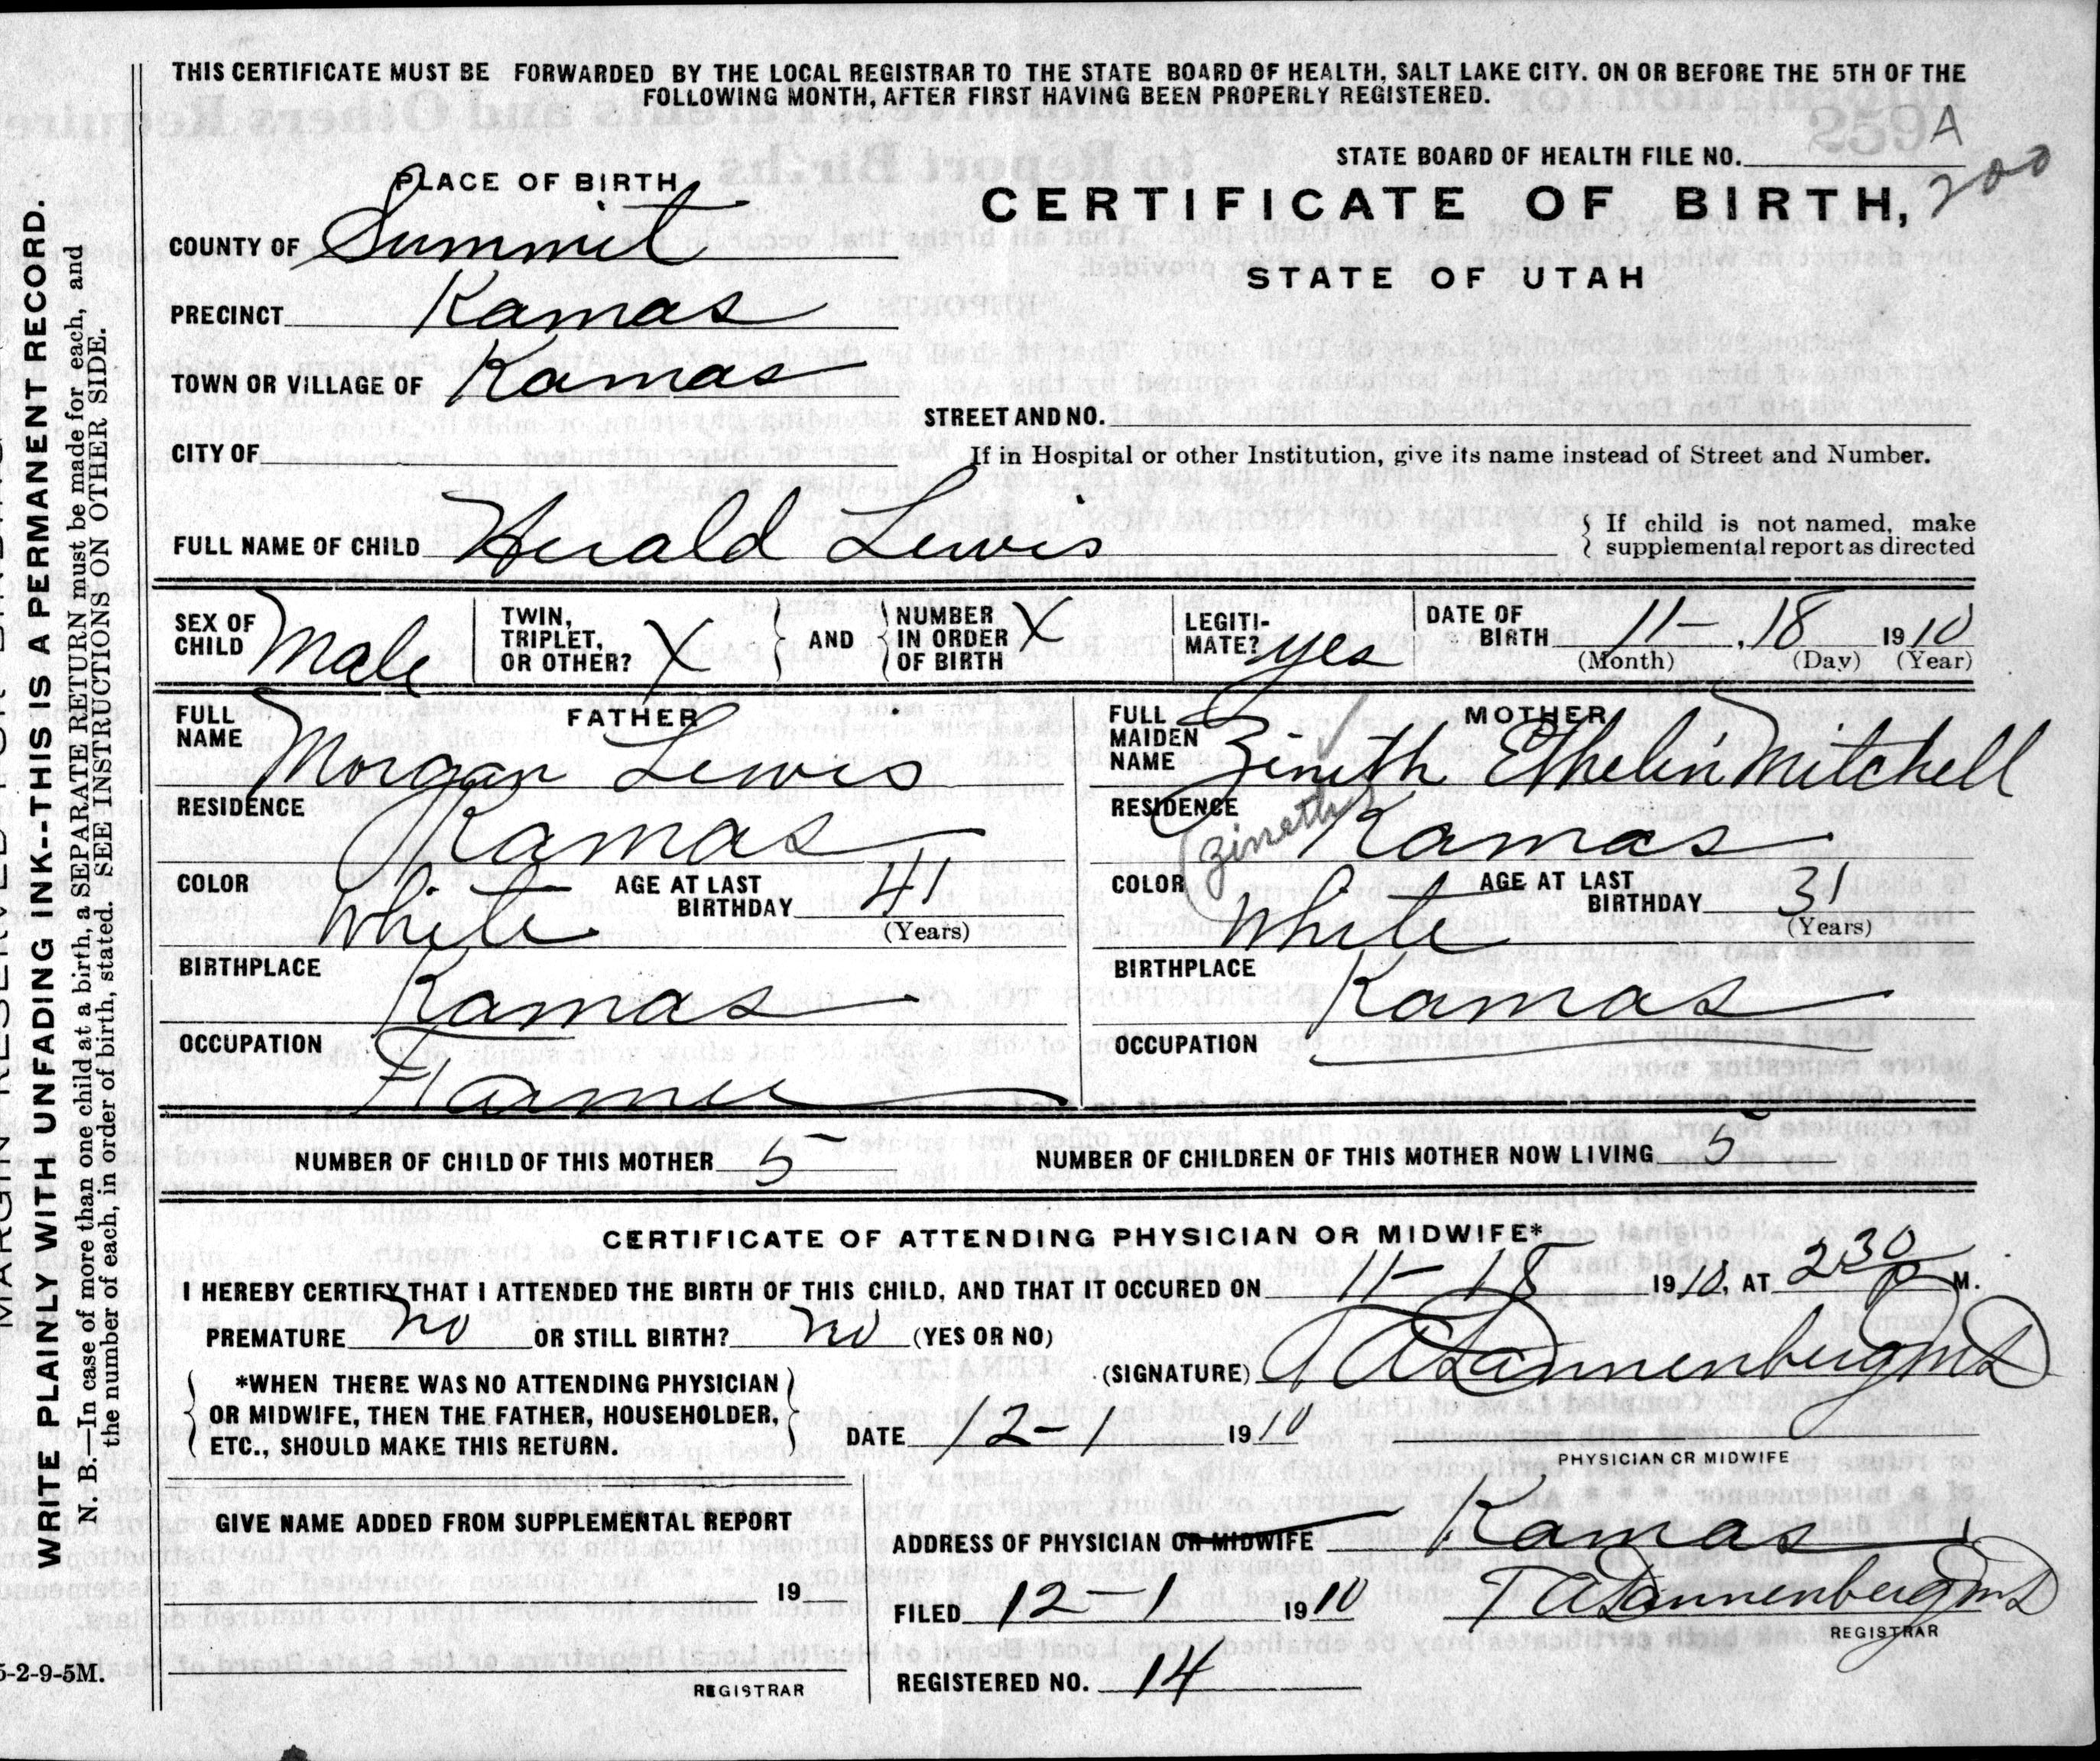 THIS CERTIFICATE MUST BE FORWARDED BY THE LOCAL REGISTRAR TO THE STATE BOARD OF HEALTH, SALT LAKE CITY. ON OR BEFORE THE 5TH OF THE
FOLLOWING MONTH, AFTER FIRST HAVING BEEN PROPERLY REGISTERED.
259 A
STATE BOARD OF HEALTH FILE NO.
200
PLACE OF BIRTH
CERTIFICATE OF BIRTH,
STATE OF UTAH
COUNTY OF Summit
PRECINCT Kamas
TOWN OR VILLAGE OF Kamas
STREET AND NO.
CITY OF
If in Hospital or other Institution, give its name instead of Street and Number.
FULL NAME OF CHILD Herald Lewis
If child is not named, make
supplemental report as directed
SEX OF CHILD Male
TWIN, TRIPLET, OR OTHER? X
AND
NUMBER IN ORDER OF BIRTH X
LEGITI-MATE? yes
DATE OF BIRTH 11- 18 1910
(Month) (Day) (Year)
FATHER
FULL NAME Morgan Lewis
RESIDENCE Kamas
COLOR White
AGE AT LAST BIRTHDAY 41
(Years)
BIRTHPLACE Kamas
OCCUPATION Farmer
MOTHER
FULL MAIDEN NAME Zinith Ethelin Mitchell
(Zineth)
RESIDENCE Kamas
COLOR White
AGE AT LAST BIRTHDAY 31
(Years)
BIRTHPLACE Kamas
OCCUPATION
NUMBER OF CHILD OF THIS MOTHER 5
NUMBER OF CHILDREN OF THIS MOTHER NOW LIVING 5
CERTIFICATE OF ATTENDING PHYSICIAN OR MIDWIFE*
I HEREBY CERTIFY THAT I ATTENDED THE BIRTH OF THIS CHILD, AND THAT IT OCCURED ON 11- 18 1910, AT 2 30 P M.
PREMATURE no OR STILL BIRTH? no (YES OR NO)
(SIGNATURE) T A Dannenberg MD
*WHEN THERE WAS NO ATTENDING PHYSICIAN
OR MIDWIFE, THEN THE FATHER, HOUSEHOLDER,
ETC., SHOULD MAKE THIS RETURN.
DATE 12-1 1910
PHYSICIAN OR MIDWIFE
GIVE NAME ADDED FROM SUPPLEMENTAL REPORT
19
REGISTRAR
ADDRESS OF PHYSICIAN OR MIDWIFE Kamas
FILED 12-1 1910 T A Dannenberg MD
REGISTRAR
REGISTERED NO. 14
5-2-9-5M.
WRITE PLAINLY WITH UNFADING INK--THIS IS A PERMANENT RECORD.
N. B.—In case of more than one child at a birth, a SEPARATE RETURN must be made for each, and
the number of each, in order of birth, stated. SEE INSTRUCTIONS ON OTHER SIDE.